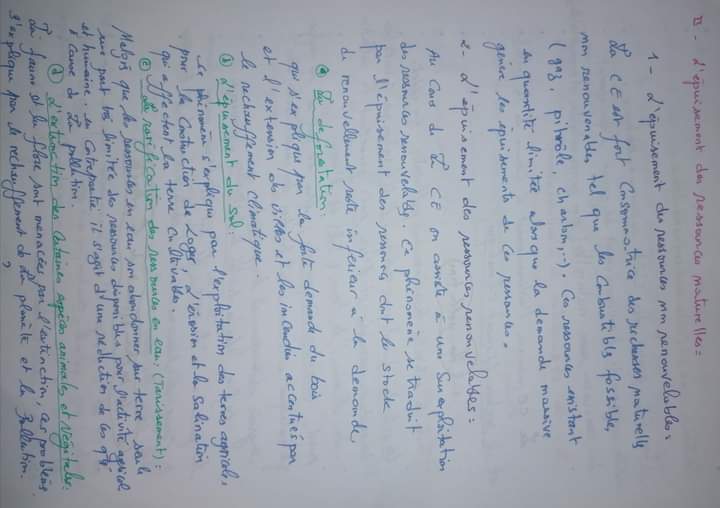 B - L'épuisement des ressources naturelles =
1 - L'épuisement des ressources non renouvelables =
La CE est fort Consommatrice des richesses naturelles
non renouvenables tel que les Combustibles fossible,
(gaz, pitrôle, charbon,...). Ces ressources existant
en quantité limitée alors que la demande massive
génère les épuisements de ces ressources.
2 - L'épuisement des ressources renouvelables =
Au Cours de La CE on assiste à une Surexploitation
des ressources renouvelables. Ce phénomène se traduit
par l'épuisement des ressources dont le stock
de renouvellement reste inférieur à la demande
ⓐ La deforestation.
qui s'explique par la forte demande du bois
et l'extension des villes et les incendies accentués par
le rechauffement climatique.
ⓑ L'épuisement du Sol:
Le phénomène s'explique par l'exploitation des terres agricoles,
pour la Construction de Loges, L'érosion et la salination
qui affectent la terre Cultivables.
ⓒ La raréfication des ressources en eau, (Tarissement) =
Malgré que les ressources en eau son abondonner sur terre seule
une part très limitée des ressources disponibles pour l'activité agricol
et humaine. en Contrepartie il s'agit d'une réduction de ces qté
à Cause de La pollution.
ⓓ L'extinction des Certaines espèces animales et végétales:
La faune et la flore sont menacées par l'extinction, ces problèmes
s'explique par le rechauffement de La planète et la Pollution.